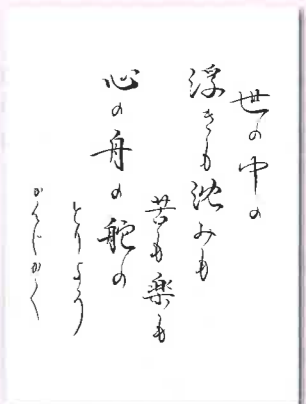 世の中の
浮きも沈みも
苦も楽も
心の舟の舵の
とりよう